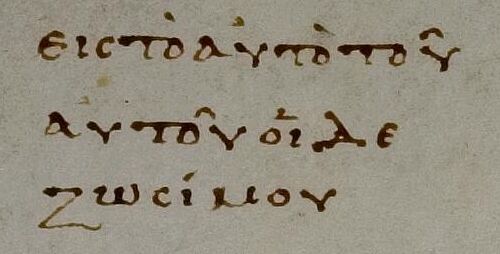 εις τὸ αὐτὸ τοῦ
αὐτοῦ οἱ δε
ζωσίμου